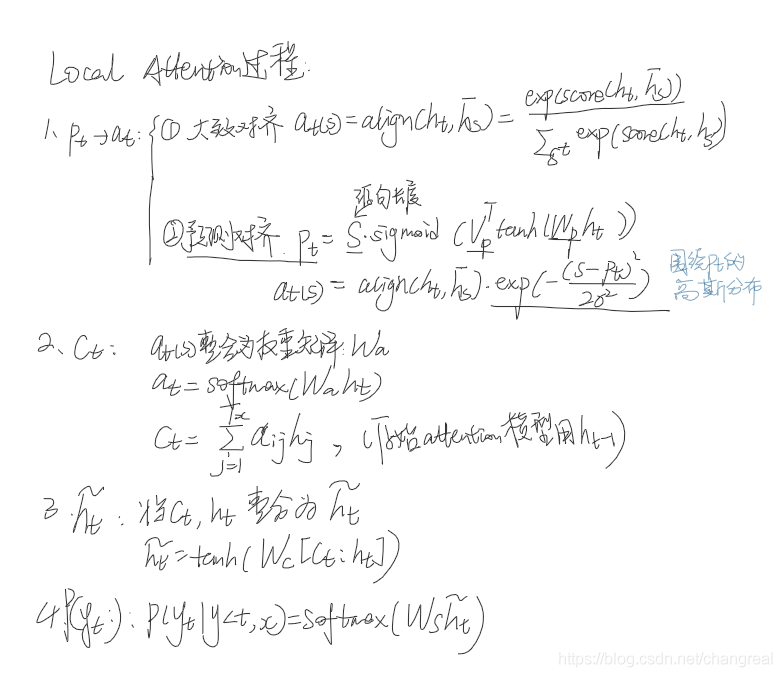 Local Attention过程:
1、Pt→at: { ① 大致对齐 at(s)=align(ht, h̄s)= exp(score(ht, h̄s)) / Σs't exp(score(ht, hs))
亚句长度
②预测对齐. Pt = S·sigmoid (Vp^T tanh(Wp ht))
at(s) = align(ht, h̄s)·exp(-(s-Pt)²/2σ²) 围绕Pt的
高斯分布
2、Ct: at(s)整合为权重矩阵Wa
at=softmax(Wa ht)
Ct= Σ(j=1→Tx) αij hj , (原始attention模型用ht-1)
3. h̃t: 将Ct, ht 整合为 h̃t
h̃t=tanh(Wc[Ct:ht])
4 P(yt:): P(yt|y<t,x)=softmax(Ws h̃t)
https://blog.csdn.net/changreal